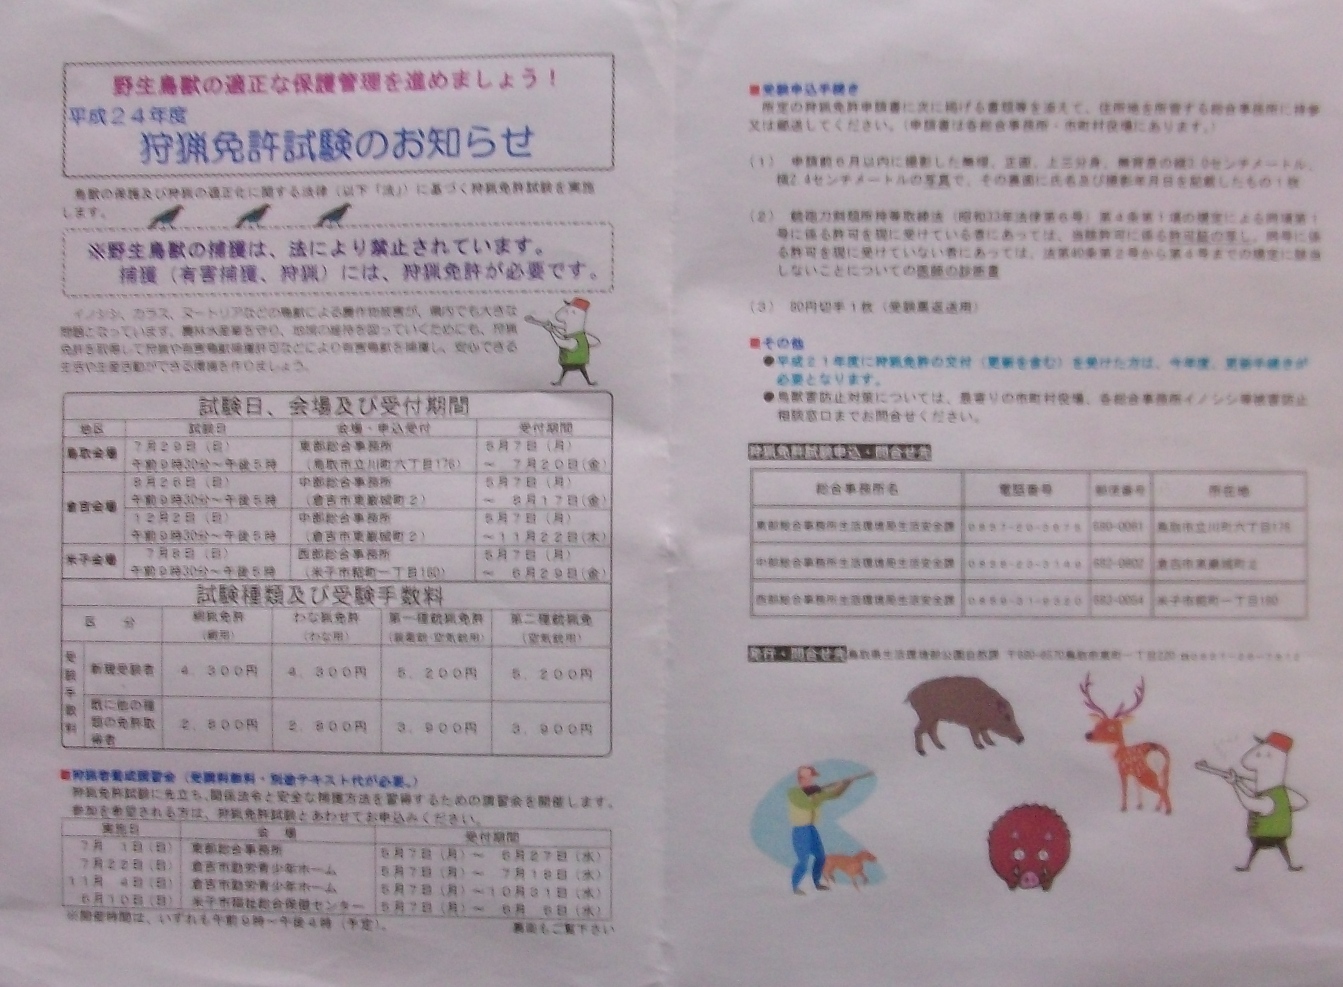 野生鳥獣の適正な保護管理を進めましょう！
平成２４年度
狩猟免許試験のお知らせ
鳥獣の保護及び狩猟の適正化に関する法律（以下「法」）に基づく狩猟免許試験を実施
します。
※野生鳥獣の捕獲は、法により禁止されています。
捕獲（有害捕獲、狩猟）には、狩猟免許が必要です。
イノシシ、カラス、ヌートリアなどの鳥獣による農作物被害が、県内でも大きな
問題となっています。農林水産業を守り、地域の維持を図っていくためにも、狩猟
免許を取得して狩猟や有害鳥獣捕獲許可などにより有害鳥獣を捕獲し、安心できる
生活や生産活動ができる環境を作りましょう。
試験日、会場及び受付期間
地区 試験日 会場・申込受付 受付期間
鳥取会場 ７月２９日（日） 東部総合事務所 ５月７日（月）
午前９時30分～午後５時 （鳥取市立川町六丁目176） ～ ７月２０日（金）
倉吉会場 ８月２６日（日） 中部総合事務所 ５月７日（月）
午前９時30分～午後５時 （倉吉市東巌城町２） ～ ８月１７日（金）
１２月２日（日） 中部総合事務所 ５月７日（月）
午前９時30分～午後５時 （倉吉市東巌城町２） ～１１月２２日（木）
米子会場 ７月８日（日） 西部総合事務所 ５月７日（月）
午前９時30分～午後５時 （米子市糀町一丁目160） ～ ６月２９日（金）
試験種類及び受験手数料
区 分 網猟免許 わな猟免許 第一種銃猟免許 第二種銃猟免
（網用） （わな用） （装薬銃・空気銃用） （空気銃用）
受験手数料
新規受験者 ４，３００円 ４，３００円 ５，２００円 ５，２００円
既に他の種
類の免許取 ２，９００円 ２，９００円 ３，９００円 ３，９００円
得者
■狩猟者養成講習会（受講料無料・別途テキスト代が必要。）
狩猟免許試験に先立ち、関係法令と安全な捕獲方法を習得するための講習会を開催します。
参加を希望される方は、狩猟免許試験とあわせてお申込みください。
実施日 会 場 受付期間
７月 １日（日） 東部総合事務所 ５月７日（月）～ ６月２７日（水）
７月２２日（日） 倉吉市勤労青少年ホーム ５月７日（月）～ ７月１８日（水）
１１月 ４日（日） 倉吉市勤労青少年ホーム ５月７日（月）～１０月３１日（水）
６月１０日（日） 米子市福祉総合保健センター ５月７日（月）～ ６月 ６日（水）
※開催時間は、いずれも午前９時～午後４時（予定）。
裏面もご覧下さい
■受験申込手続き
所定の狩猟免許申請書に次に掲げる書類等を添えて、住所地を所管する総合事務所に持参
又は郵送してください。（申請書は各総合事務所・市町村役場にあります。）
（１） 申請前６月以内に撮影した無帽、正面、上三分身、無背景の縦3.0センチメートル、
横2.4センチメートルの写真で、その裏面に氏名及び撮影年月日を記載したもの１枚
（２） 銃砲刀剣類所持等取締法（昭和33年法律第６号）第４条第１項の規定による同項第１
号に係る許可を現に受けている者にあっては、当該許可に係る許可証の写し、同号に係
る許可を現に受けていない者にあっては、法第40条第２号から第４号までの規定に該当
しないことについての医師の診断書
（３） 80円切手１枚（受験票返送用）
■その他
●平成２１年度に狩猟免許の交付（更新を含む）を受けた方は、今年度、更新手続きが
必要となります。
●鳥獣害防止対策については、最寄りの市町村役場、各総合事務所イノシシ等被害防止
相談窓口までお問合せください。
狩猟免許試験申込・問合せ先
総合事務所名 電話番号 郵便番号 所在地
東部総合事務所生活環境局生活安全課 680-0061 鳥取市立川町六丁目176
中部総合事務所生活環境局生活安全課 682-0802 倉吉市東巌城町２
西部総合事務所生活環境局生活安全課 ０８５９-３１-９３２０ 683-0054 米子市糀町一丁目160
発行・問合せ先 鳥取県生活環境部公園自然課 〒680-8570鳥取市東町一丁目220